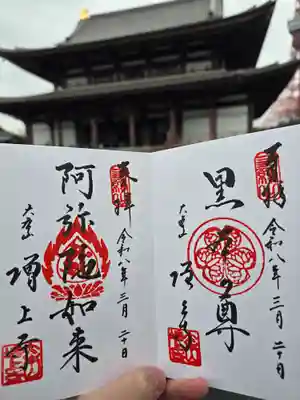 奉拝
黒本尊
大本山
増上寺
令和八年三月二十日
奉拝
阿弥陀如来
大本山
増上寺
令和八年三月二十日